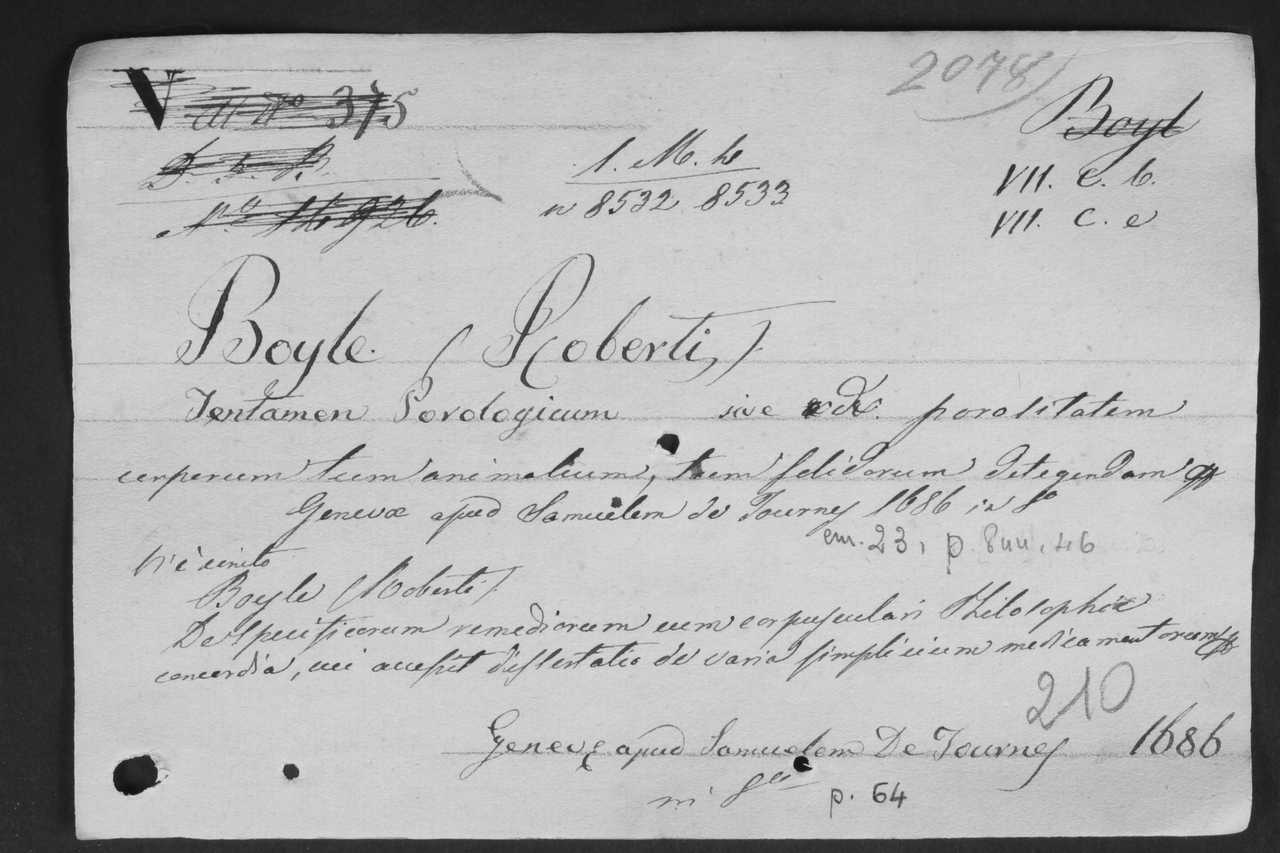 V
375
2078
Boyl
1. M. h
VII. C. b.
n 8532 8533
VII. C. e
Boyle. (Roberti)
Tentamen Porologicum sive ad. porositatem
corporum tum animalium, tum solidorum detegendam
Genevæ apud Samuelem de Tournes 1686 in 8°
em. 23, p. 8nn. 46
Vi è unito
Boyle (Roberti)
De specificorum remediorum cum corpusculari Philosophia
concordia, cui accessit dissertatio de varia simplicium medicamentorum
210
Genevæ apud Samuelem De Tournes 1686
in 8°
p. 64